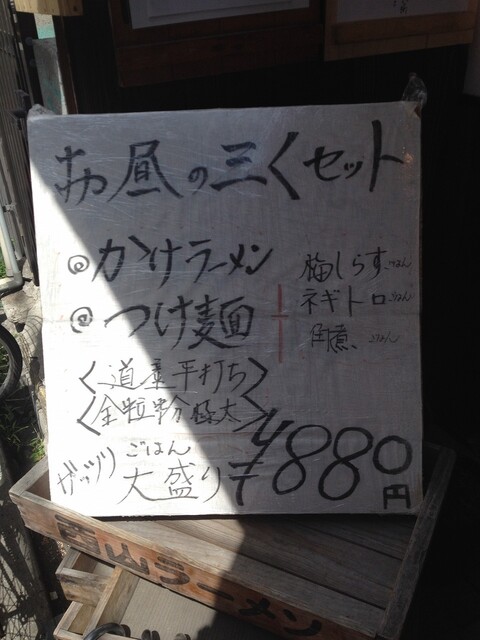 お昼の三くセット
◎かけラーメン
◎つけ麺
梅しらすごはん
ネギトロごはん
角煮、ごはん
<道産平打ち>
<全粒粉極太>
ガッツリ ごはん大盛りで
¥880円
西山ラーメン